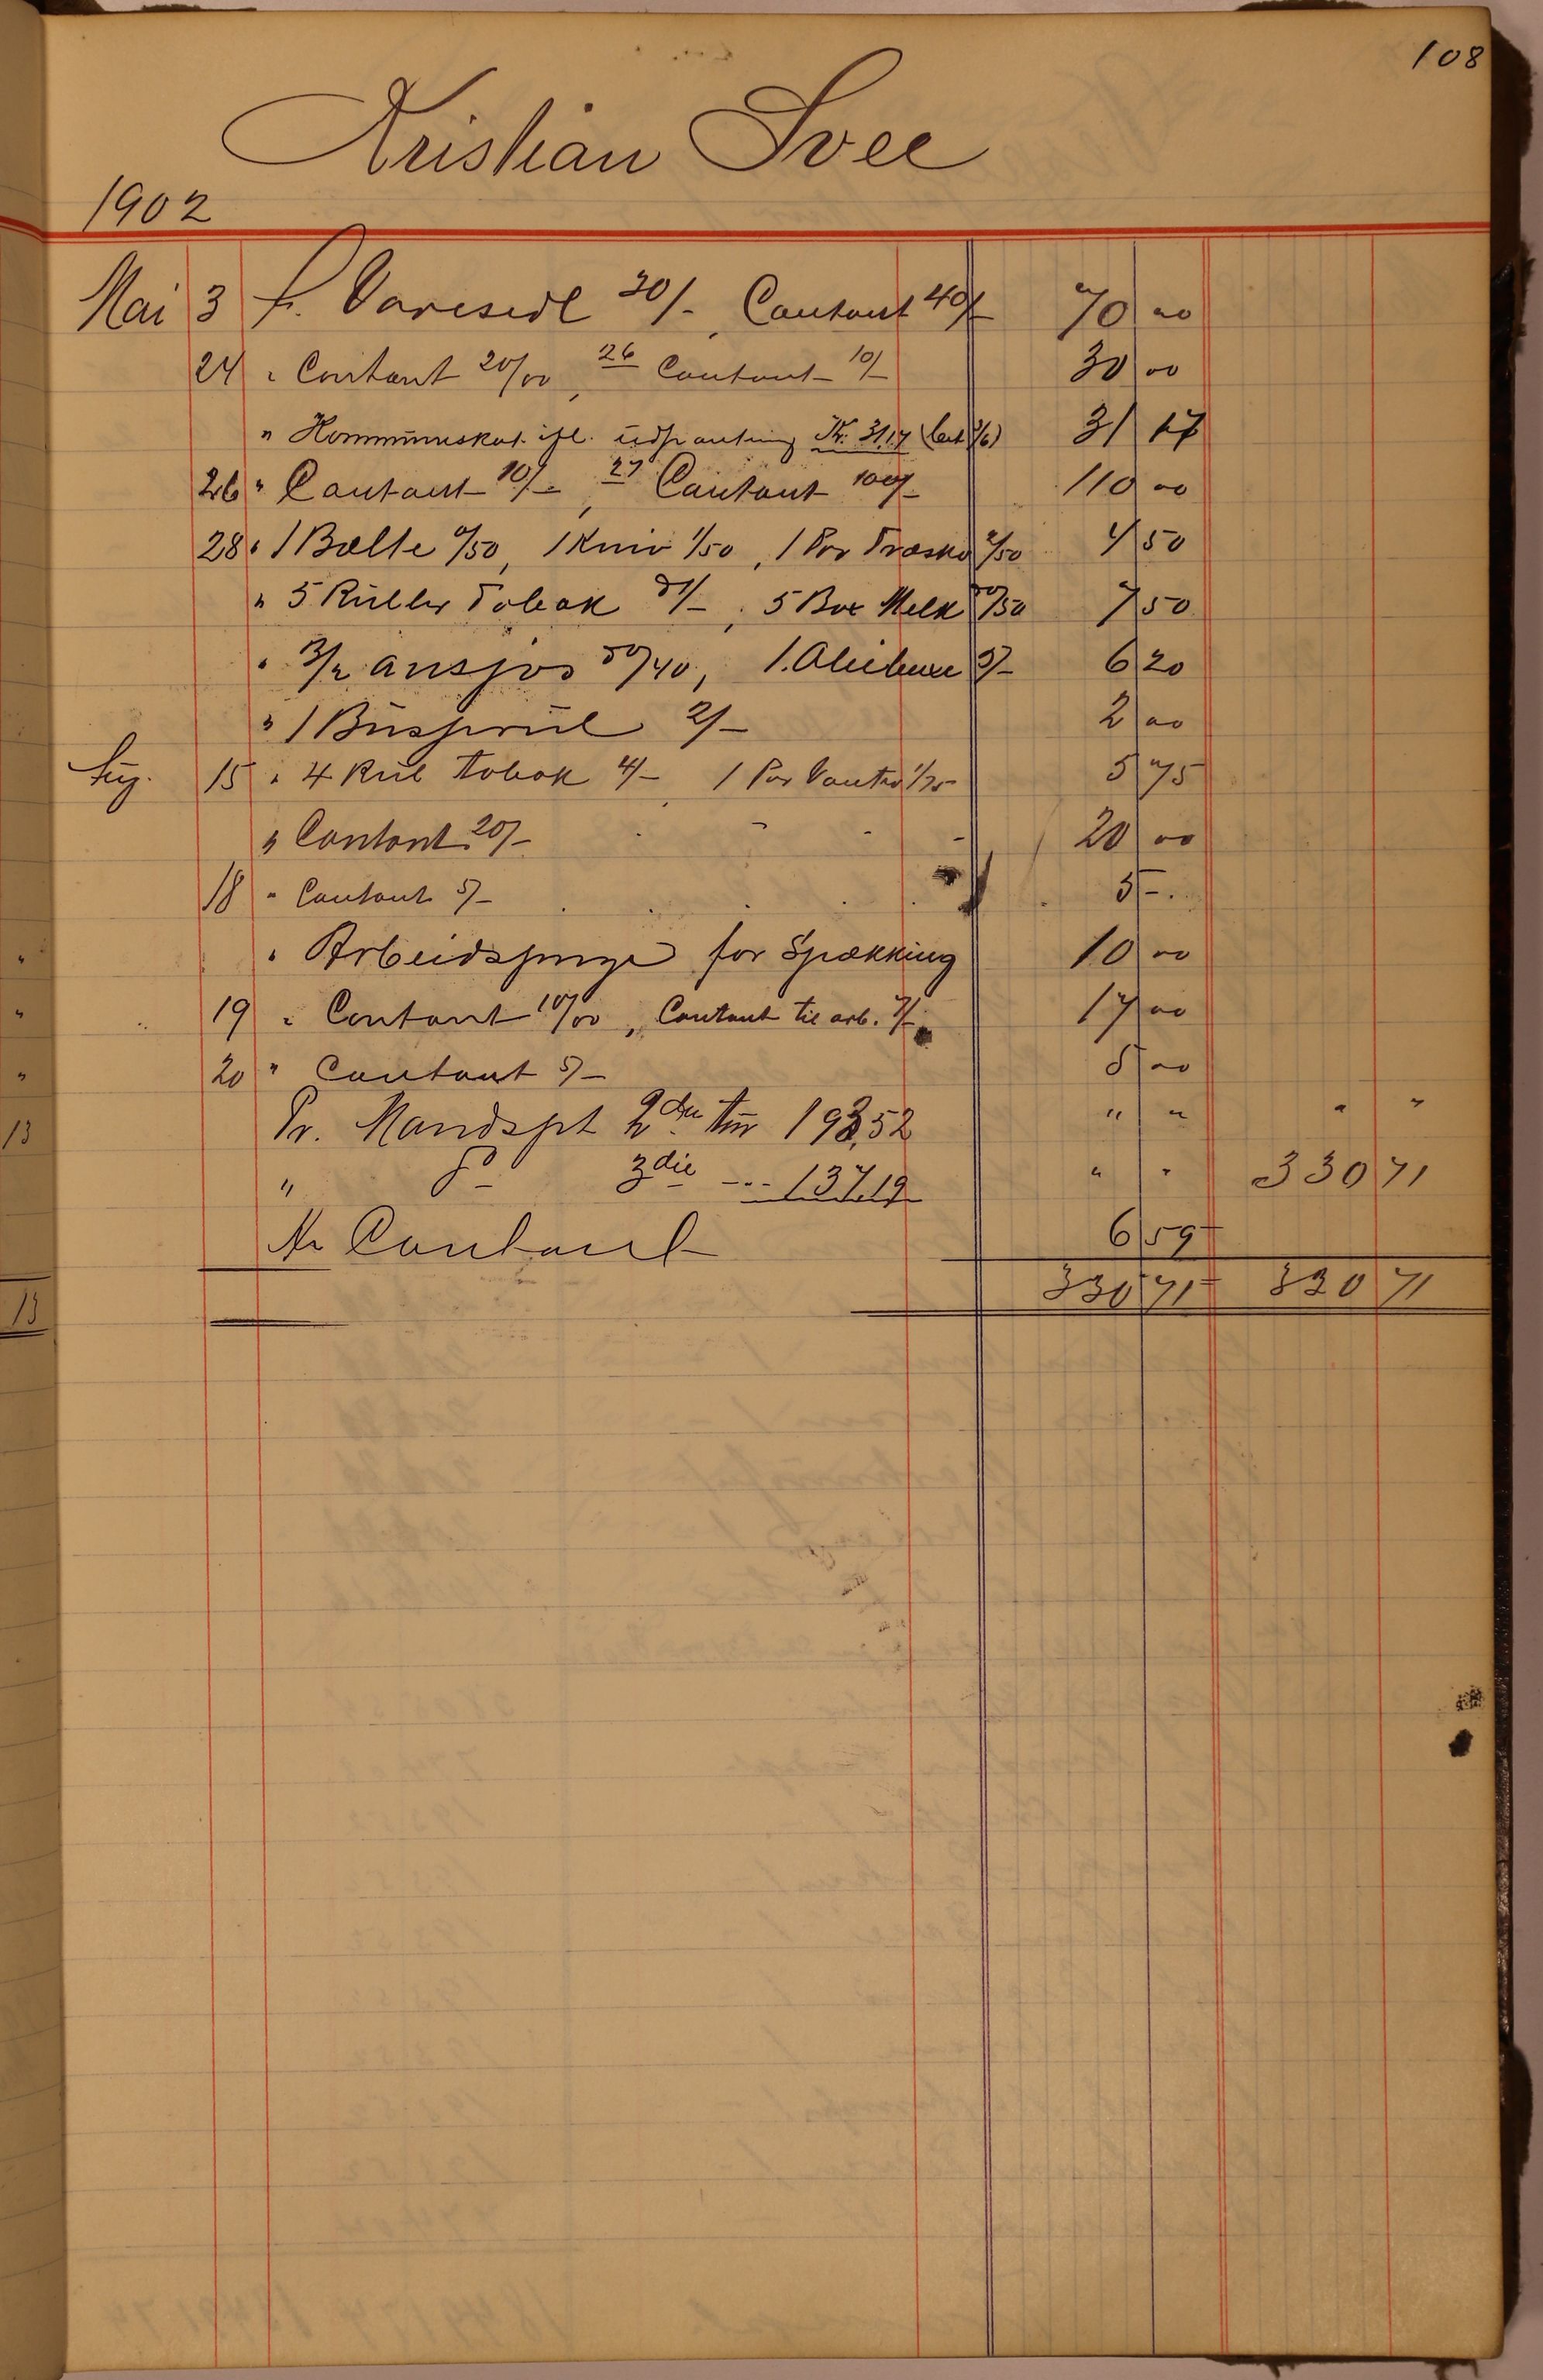 108
Kristian Svee
1902
Mai 3 f. Varesedl 30/-, Contant 40/- 70 00
24 " Contant 20/00, 26 Contant 10/- 30 00
" Kommuneskat ifl. udpantning Kr. 31,17 31 17
26 " Contant 10/-, 27 Contant 100/- 110 00
28 " 1 Bælte 0/50, 1 Kniv 1/50, 1 Par Træsko 2/50 4 50
" 5 Ruller Tobak 5/-, 5 Box Melk 50/50 7 50
" 3/2 ansjos 40, 1. 3/- 6 20
" 1 2/- 2 00
Aug. 15 " 4 Rul tobak 4/-, 1 Par Vanter 1/75 5 75
" Contant 20/- 20 00
18 " Contant 5/- 5 -.
" Arbeidspenge for Spækking 10 00
19 " Contant 10/00, Contant til arb. 7/- 17 00
20 " Contant 5/- 5 00
Pr. Mandspt 2den tur 193,52 " " " "
" Do 3die --- 137,19 " " 330 71
An Contant 6 59
330 71 330 71
"
"
"
13
13